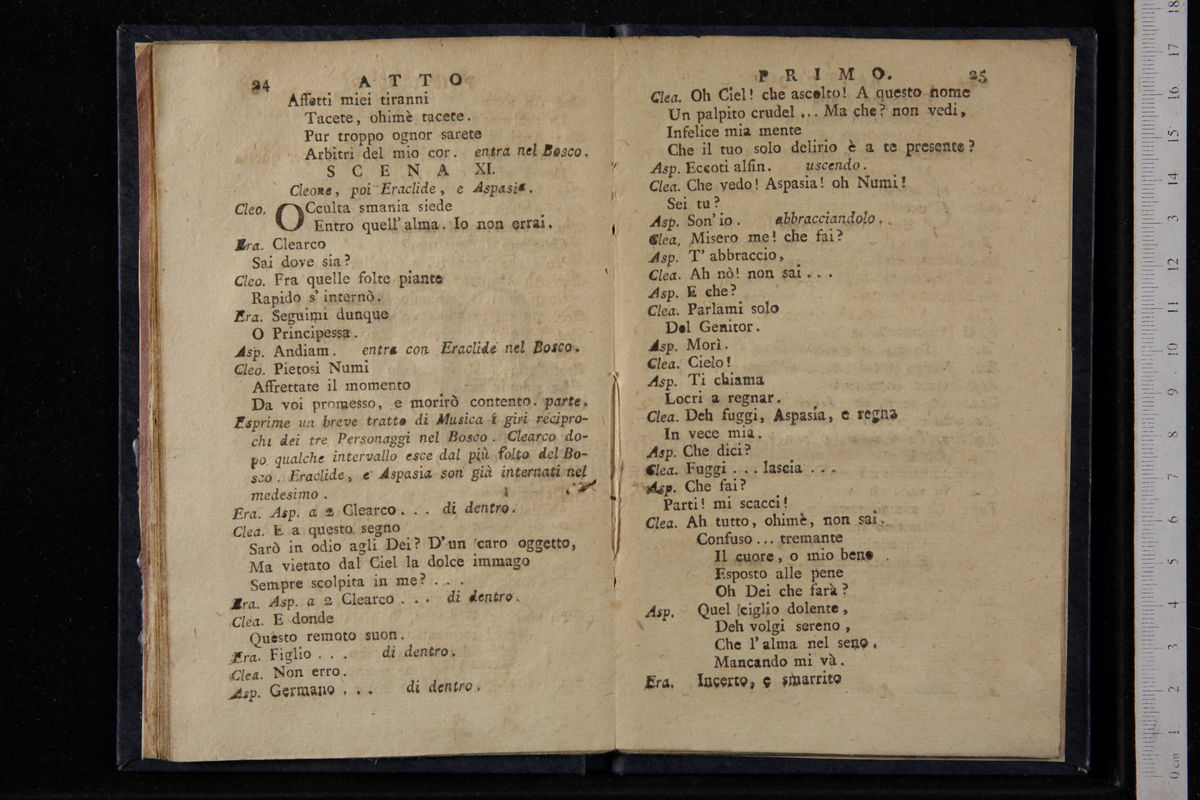 24 ATTO
Affetti miei tiranni
Tacete, ohimè tacete.
Pur troppo ognor sarete
Arbitri del mio cor. entra nel Bosco.
SCENA XI.
Cleone, poi Eraclide, e Aspasia.
Cleo. OCculta smania siede
Entro quell' alma. Io non errai.
Era. Clearco
Sai dove sia?
Cleo. Fra quelle folte piante
Rapido s' internò.
Era. Seguimi dunque
O Principessa.
Asp. Andiam. entra con Eraclide nel Bosco.
Cleo. Pietosi Numi
Affrettate il momento
Da voi promesso, e morirò contento. parte.
Esprime un breve tratto di Musica i giri recipro-
chi dei tre Personaggi nel Bosco. Clearco do-
po qualche intervallo esce dal più folto del Bo-
sco. Eraclide, e Aspasia son già internati nel
medesimo.
Era. Asp. a 2 Clearco... di dentro.
Clea. E a questo segno
Sarò in odio agli Dei? D'un caro oggetto,
Ma vietato dal Ciel la dolce immago
Sempre scolpita in me?...
Era. Asp. a 2 Clearco... di dentro.
Clea. E donde
Questo remoto suon.
Era. Figlio... di dentro.
Clea. Non erro.
Asp. Germano... di dentro.
PRIMO. 25
Clea. Oh Ciel! che ascolto! A questo nome
Un palpito crudel... Ma che? non vedi,
Infelice mia mente
Che il tuo solo delirio è a te presente?
Asp. Eccoti alfin. uscendo.
Clea. Che vedo! Aspasia! oh Numi!
Sei tu?
Asp. Son' io. abbracciandolo.
Clea. Misero me! che fai?
Asp. T' abbraccio,
Clea. Ah nò! non sai...
Asp. E che?
Clea. Parlami solo
Del Genitor.
Asp. Morì.
Clea. Cielo!
Asp. Ti chiama
Locri a regnar.
Clea. Deh fuggi, Aspasia, e regna
In vece mia.
Asp. Che dici?
Clea. Fuggi... lascia...
Asp. Che fai?
Parti! mi scacci!
Clea. Ah tutto, ohimè, non sai.
Confuso... tremante
Il cuore, o mio bene
Esposto alle pene
Oh Dei che farà?
Asp. Quel ciglio dolente,
Deh volgi sereno,
Che l'alma nel seno.
Mancando mi và.
Era. Incerto, e smarrito
0 cm 1 2 3 4 5 6 7 8 9 10 11 12 13 14 15 16 17 18